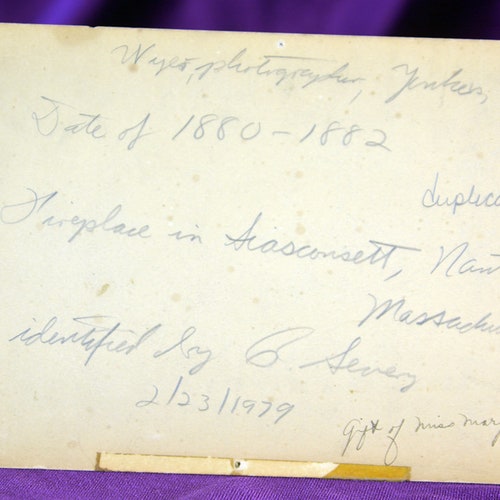 Wyer, photographer, Yonkers,
Date of 1880-1882
duplica
Fireplace in Siasconsett, Nan
Massachu
identified by B. Severy
2/23/1979
Gift of Miss Mary